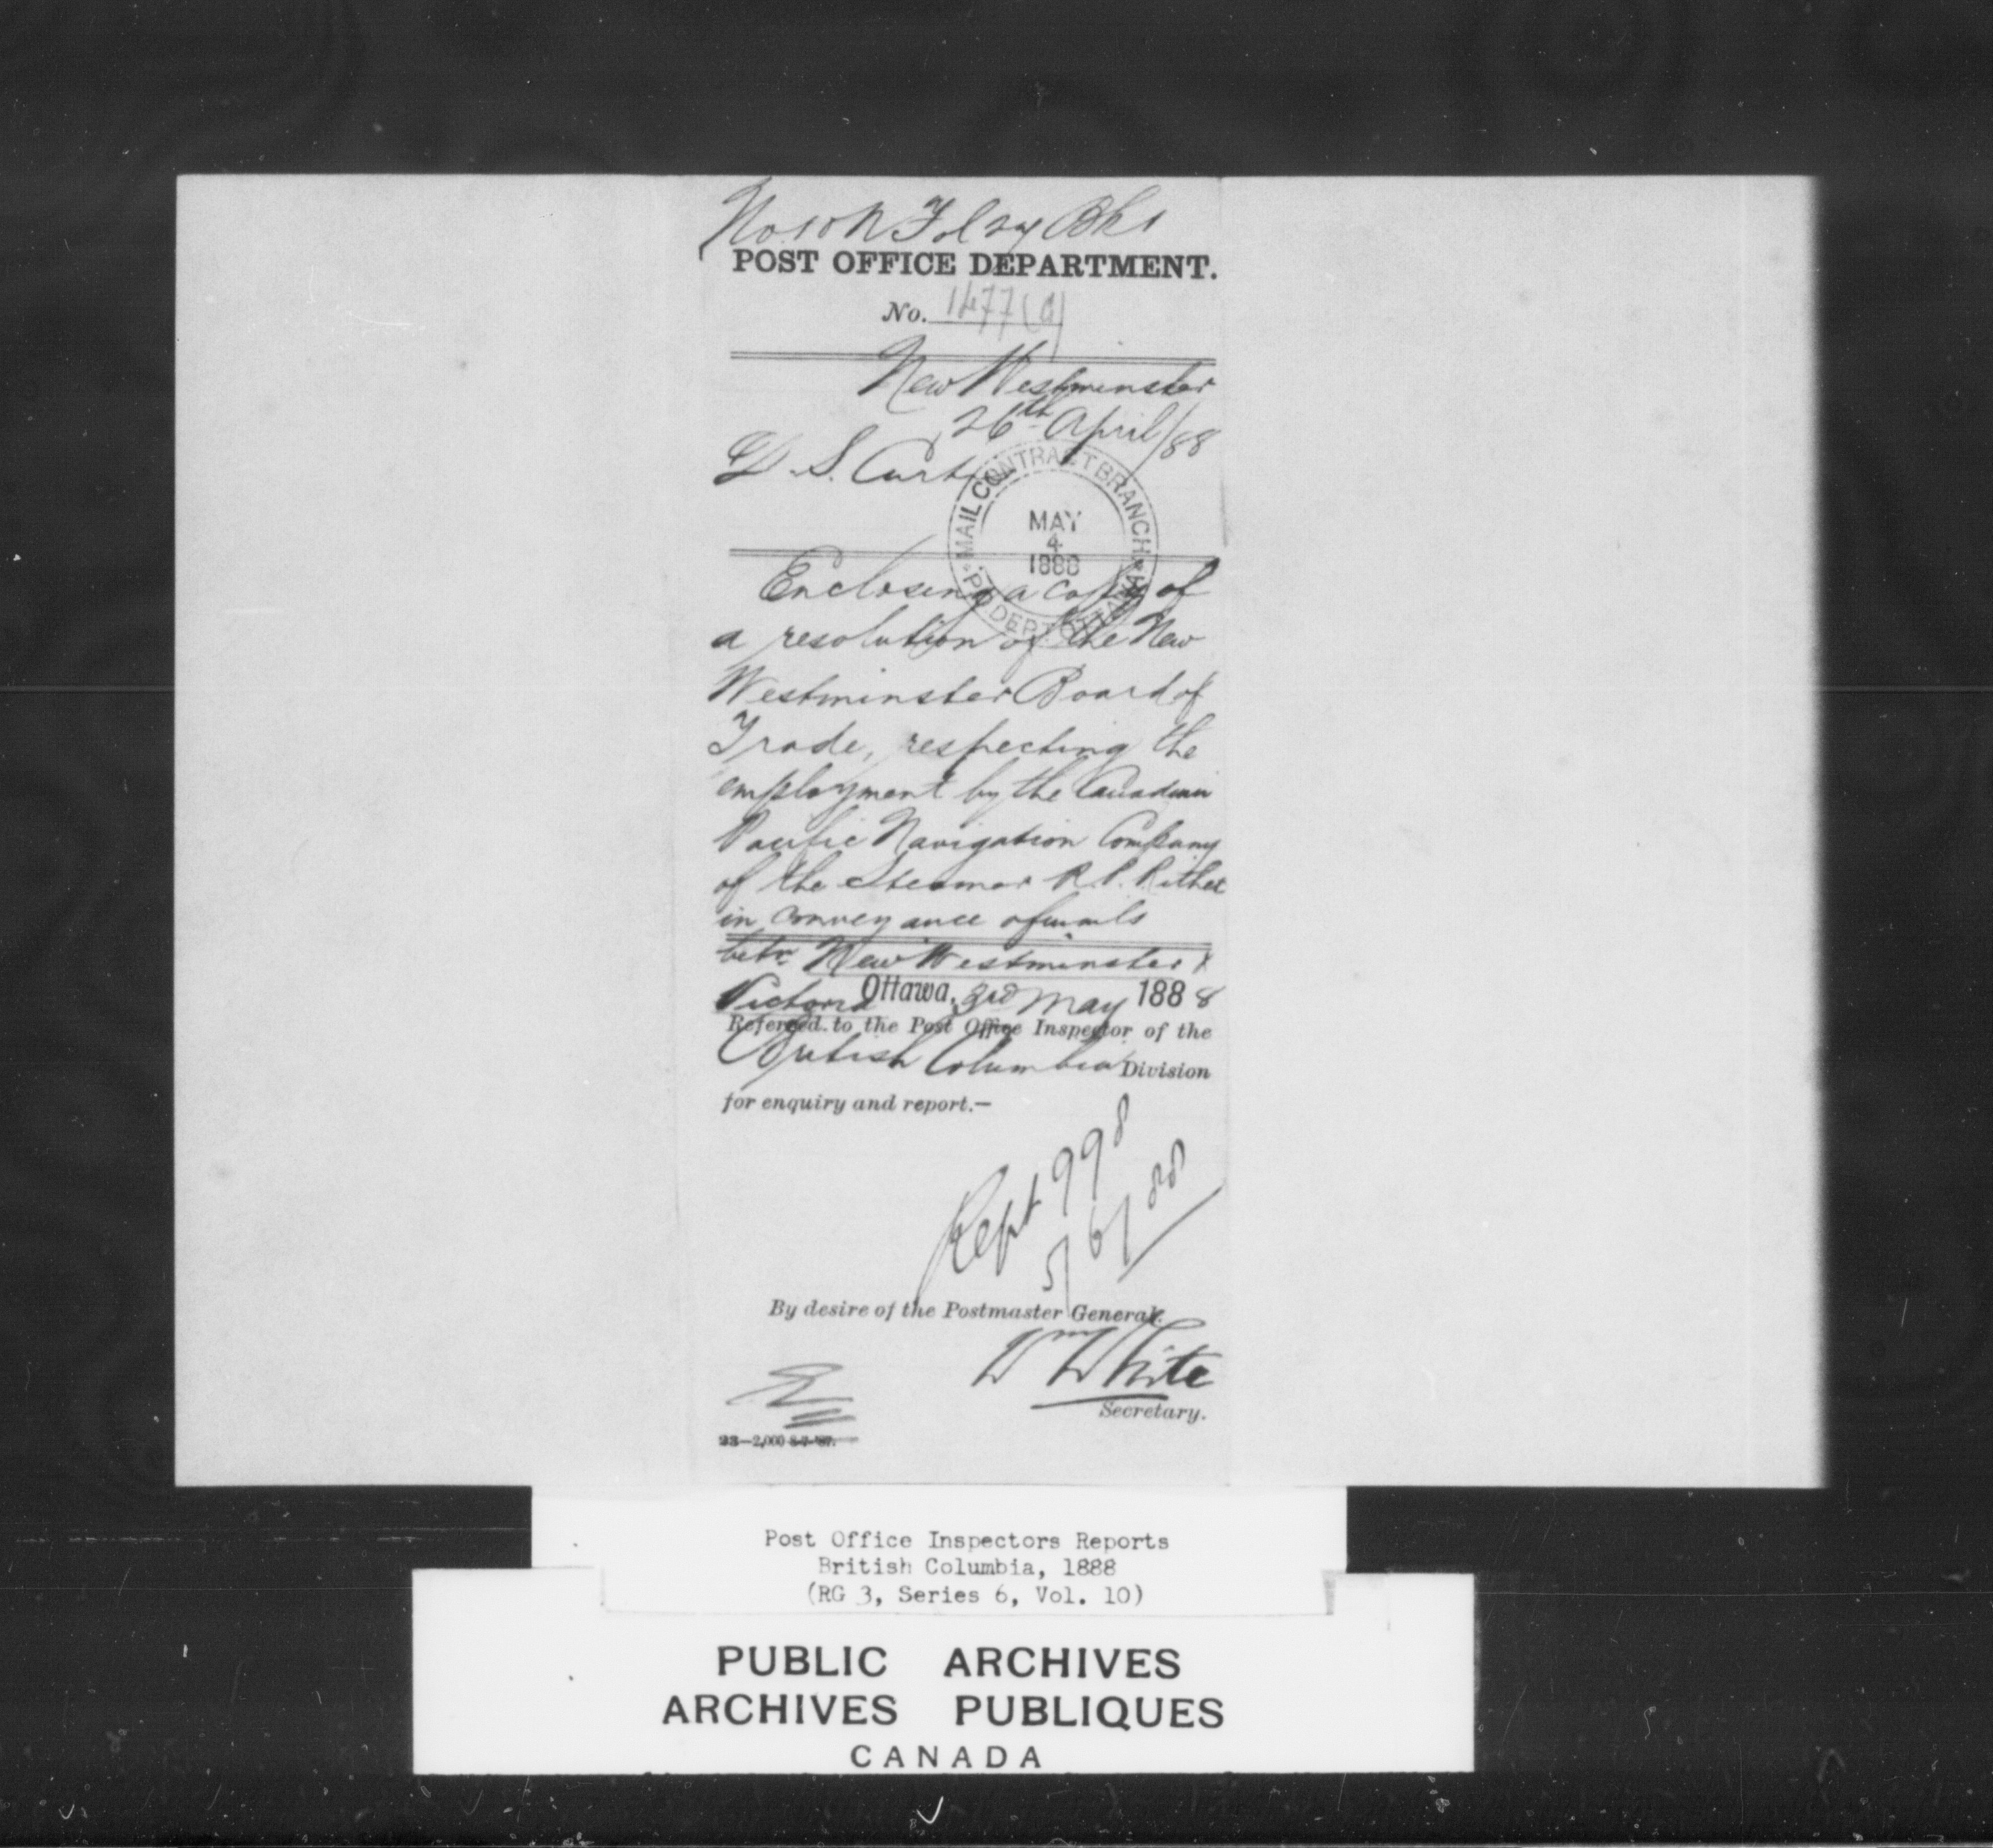 No 10 N Fol 24 Bk 1
POST OFFICE DEPARTMENT.
No. 1477 (a)
New Westminster
26th April/88
D. S. Curtis
MAIL CONTRACT BRANCH
MAY
4
1888
P.O. DEPT OTTAWA
Enclosing a copy of
a resolution of the New
Westminster Board of
Trade, respecting the
employment by the Canadian
Pacific Navigation Company
of the Steamer R. P. Rithet
in conveyance of mails
betn New Westminster &
Victoria
Ottawa, 3rd May 1888
Referred to the Post Office Inspector of the
British Columbia Division
for enquiry and report.—
Rept 998
5/6/88
By desire of the Postmaster General.
Wm White
Secretary.
23—2,000 8-7-'87.
Post Office Inspectors Reports
British Columbia, 1888
(RG 3, Series 6, Vol. 10)
PUBLIC ARCHIVES
ARCHIVES PUBLIQUES
CANADA